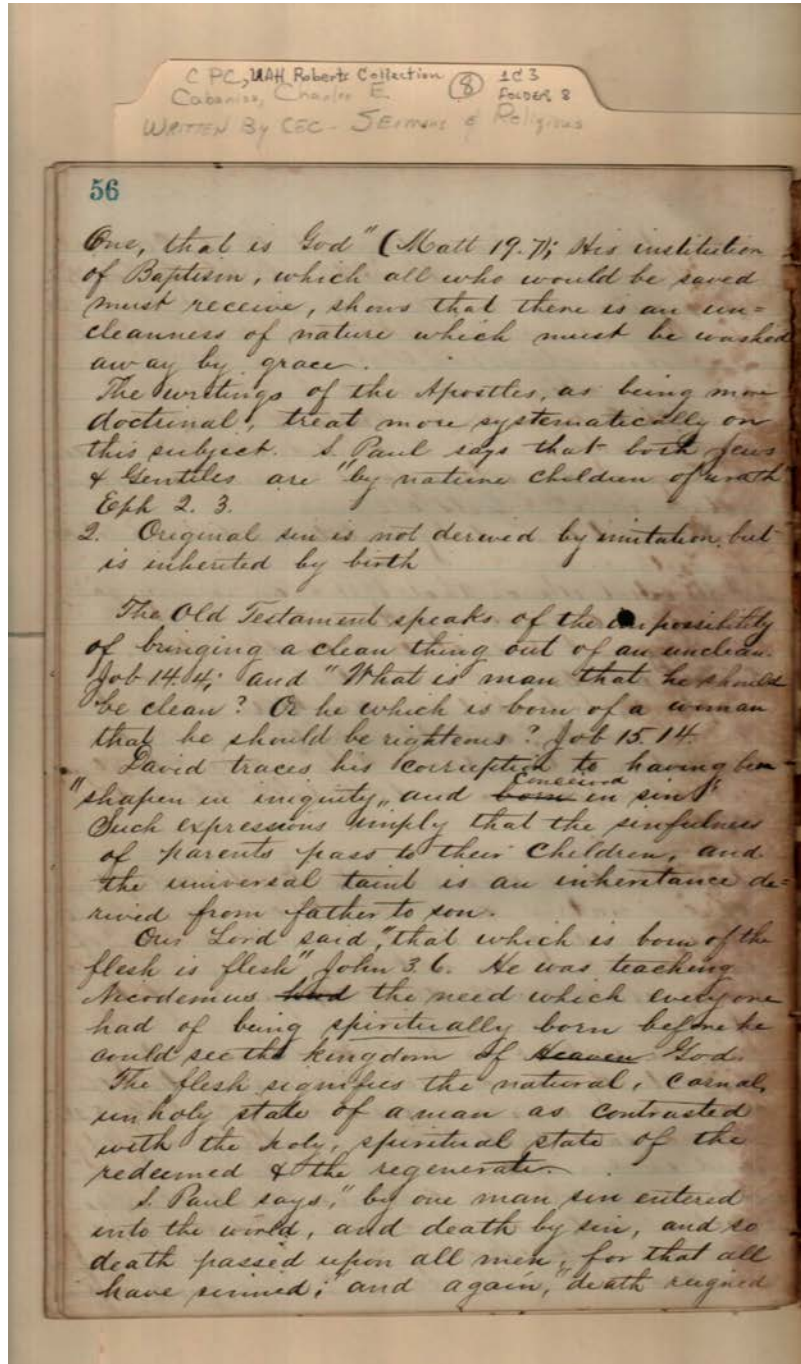 CPC, UAH Roberts Collection (8) 1C3
Cabaniss, Charles E. FOLDER 8
WRITTEN By CEC - SERMONS & Religious
56
One, that is God" (Matt 19.7); His institution
of Baptism, which all who would be saved
must receive, shows that there is an un=
cleanness of nature which must be washed
away by grace.
The writings of the Apostles, as being more
doctrinal, treat more systematically on
this subject. S. Paul says that both Jews
& Gentiles are "by nature children of wrath
Eph 2. 3.
2. Original sin is not derived by imitation but
is inherited by birth
The Old Testament speaks of the impossibility
of bringing a clean thing out of an unclean.
Job 14.4; and "What is man that he should
be clean? Or he which is born of a woman
that he should be righteous? Job 15.14.
David traces his corruption to having been
"shapen in iniquity," and born Conceived in sin"
Such expressions imply that the sinfulness
of parents pass to their children, and
the universal taint is an inheritance de=
rived from father to son.
Our Lord said, "that which is born of the
flesh is flesh", John 3.6. He was teaching
Nicodemus had the need which everyone
had of being spiritually born before he
could see the kingdom of Heaven God.
The flesh signifies the natural, carnal,
unholy state of a man as contrasted
with the holy, spiritual state of the
redeemed & the regenerate.
S. Paul says, "by one man sin entered
into the world, and death by sin, and so
death passed upon all men, for that all
have sinned;" and again, "death reigned